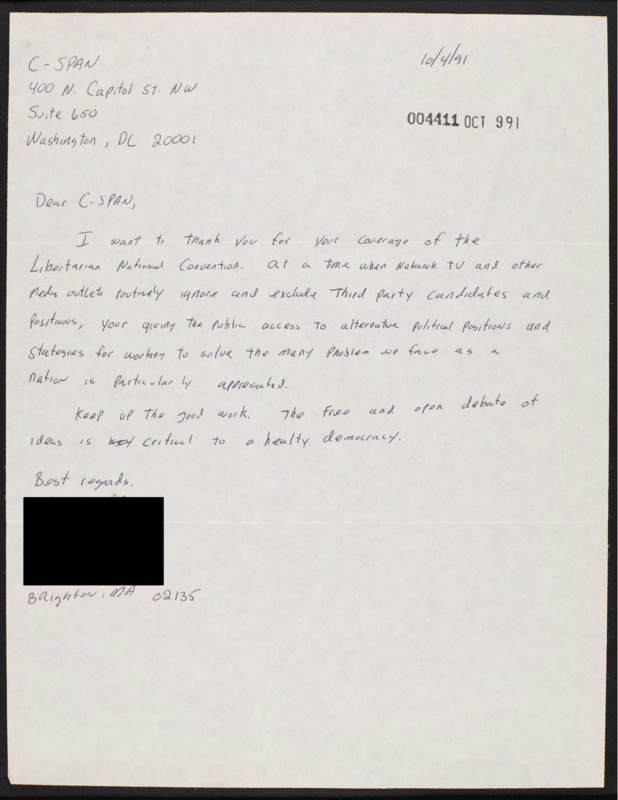 C-SPAN
10/4/91
400 N. Capitol St. NW
Suite 650
004411 OCT 9 91
Washington, DC 20001
Dear C-SPAN,
I want to thank you for your coverage of the
Libertarian National Convention. At a time when Network TV and other
Media outlets routinely ignore and exclude Third party candidates and
Positions, your giving the public access to alternative political positions and
Stategies for working to solve the many Problem we face as a
nation is particularly appreciated.
Keep up the good work. The free and open debate of
ideas is critical to a healty democracy.
Best regards.
Brighton, MA 02135